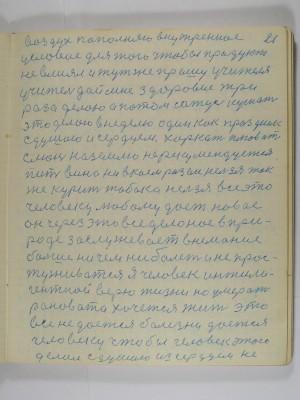 воздух пополняю внутренное 21
целовое для того чтобы продукт
не влиял и тут же прошу учителя
учитель дай мне здоровье три
раза делаю а потом сажусь кушат
это делаю в неделю один как праздник
с душою и сердцем. харкат плеват
смоц на землю не рекумендуется
пит вино ни в коем разе нелзя так
же курит табака нелзя все это
человеку любому дает новое
он через это все делоное в при-
роде заслуживает внимание
болше ничем ни болет и не прос-
туживатся я человек интили-
гентной верю жизни но умерат
рановата хочется жит это
все не дается болезни дается
человеку чтобы человек этого
делал с душою из сердцем не